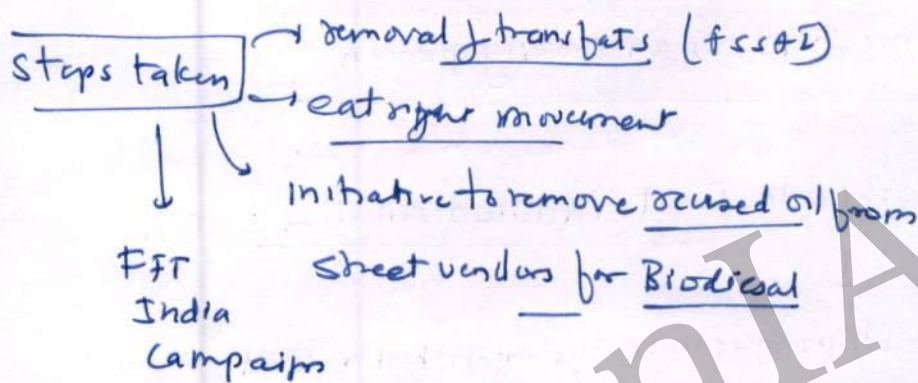 Steps taken
→ removal of transfats (FSSAI)
→ eat right movement
initiative to remove reused oil from
street vendors for Biodiesal
FIT
India
Campaign
nIA